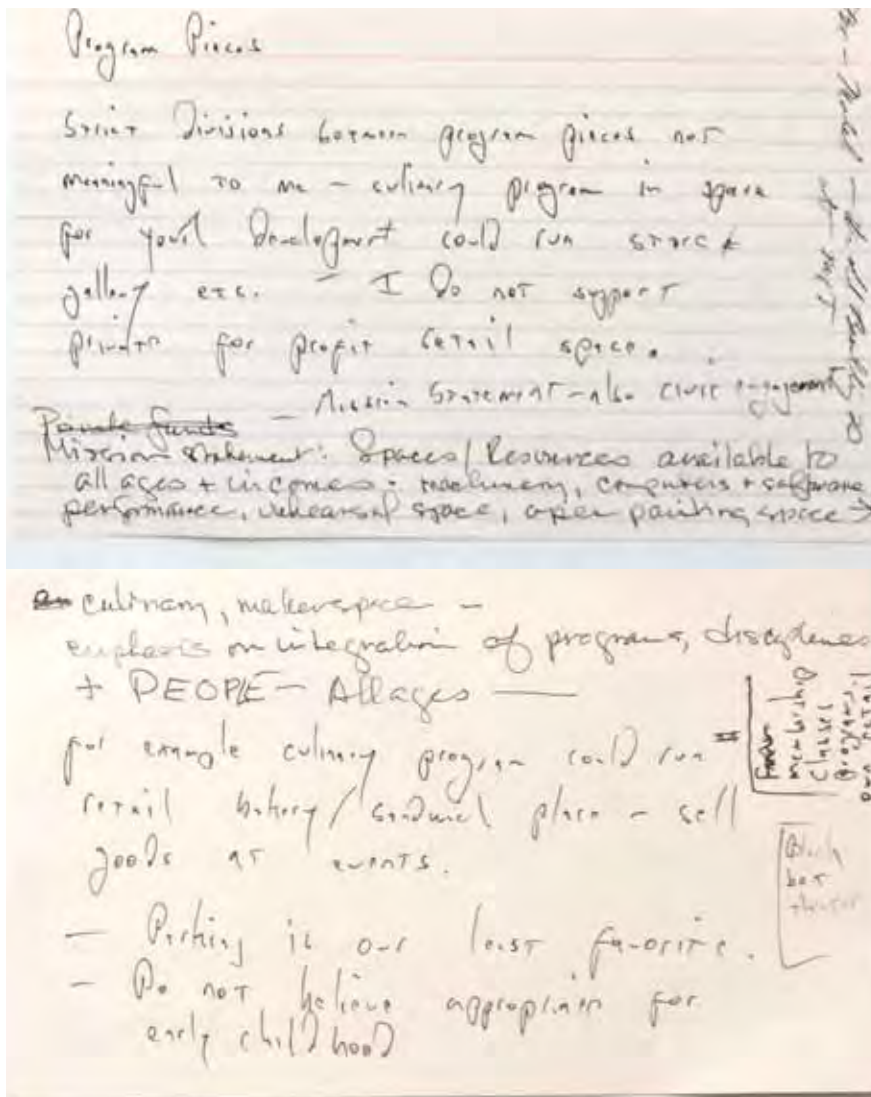 Program Pieces
Strict Divisions between program pieces not
meaningful to me – culinary program in space
for youth Development could run store &
gallery etc. – I Do not support
private for profit retail space.
– Mission Statement – also civic engagement
Private funds
Mission statement: Spaces/Resources available to
all ages + incomes - machinery, computers + software
performance, rehearsal space, open painting space →
culinary, makerspace –
emphasis on integration of programs, disciplines
+ PEOPLE – All ages —
for example culinary program could run
retail bakery/sandwich place – sell
goods at events.
– Parking is our least favorite.
– Do not believe appropriate for
early childhood
membership
classes
programs
own retail
Black
box
theater